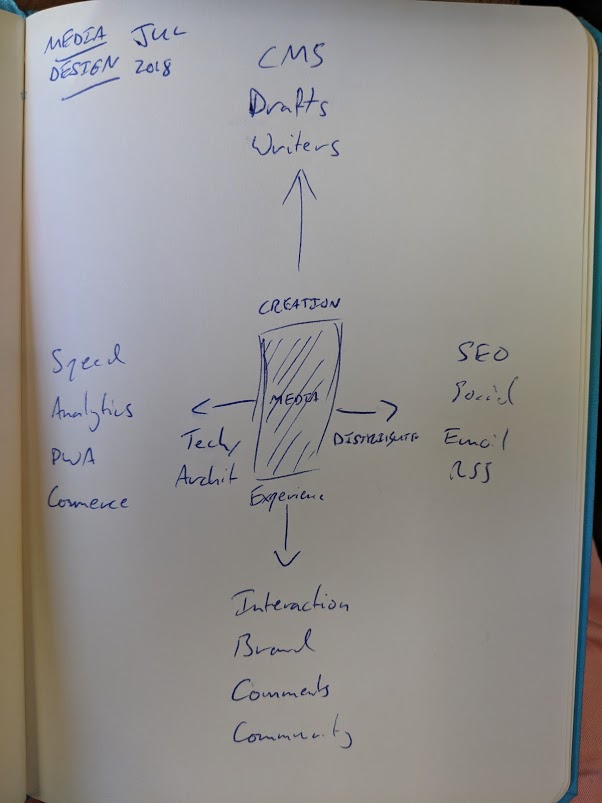 MEDIA JUL
DESIGN 2018
CMS
Drafts
Writers
CREATION
MEDIA
Speed
Analytics
PWA
Commerce
Tech/
Archit
DISTRIBUTE
SEO
Social
Email
RSS
Experience
Interaction
Brand
Comments
Community